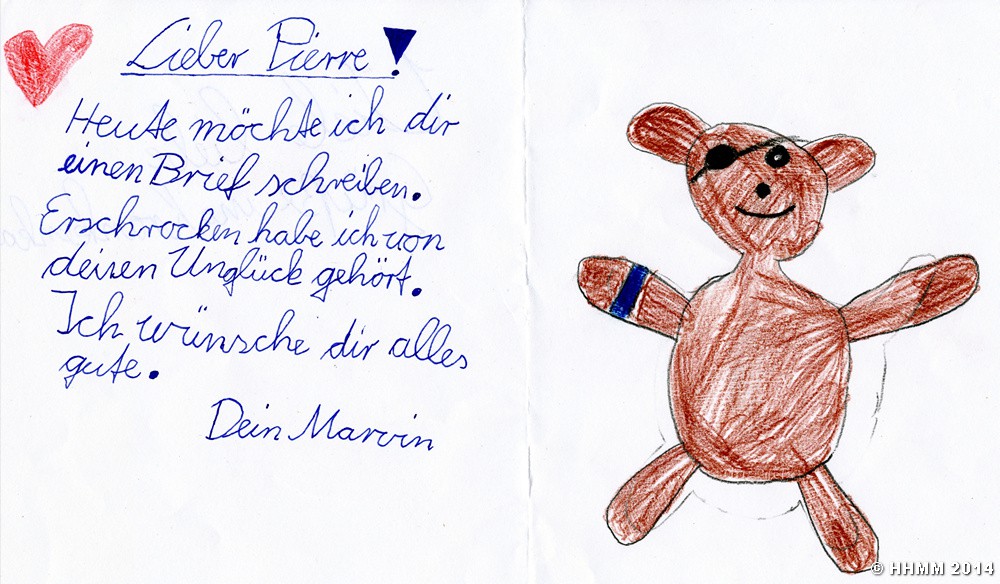 Lieber Pierre!
Heute möchte ich dir
einen Brief schreiben.
Erschrocken habe ich von
deinen Unglück gehört.
Ich wünsche dir alles
gute.
Dein Marvin
© HHMM 2014